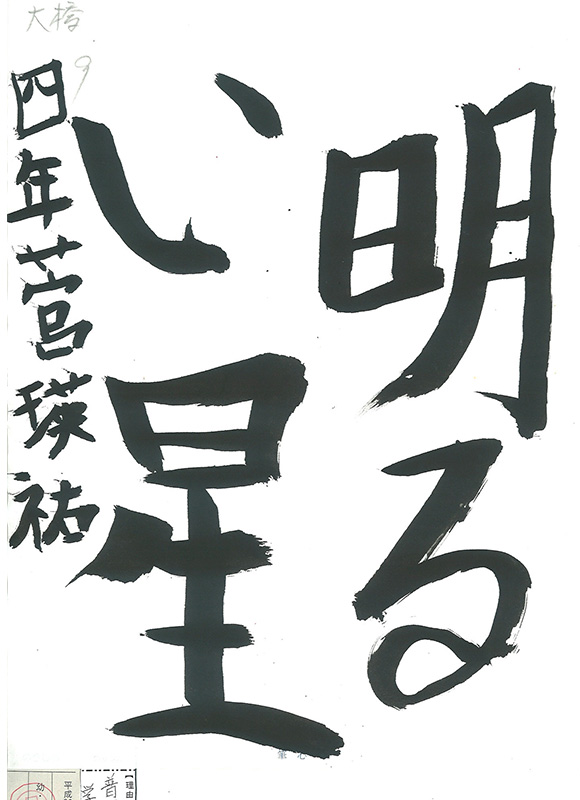 明る
い星
四年菅瑛祐
大橋
9
【理由
普
学
平成
幼